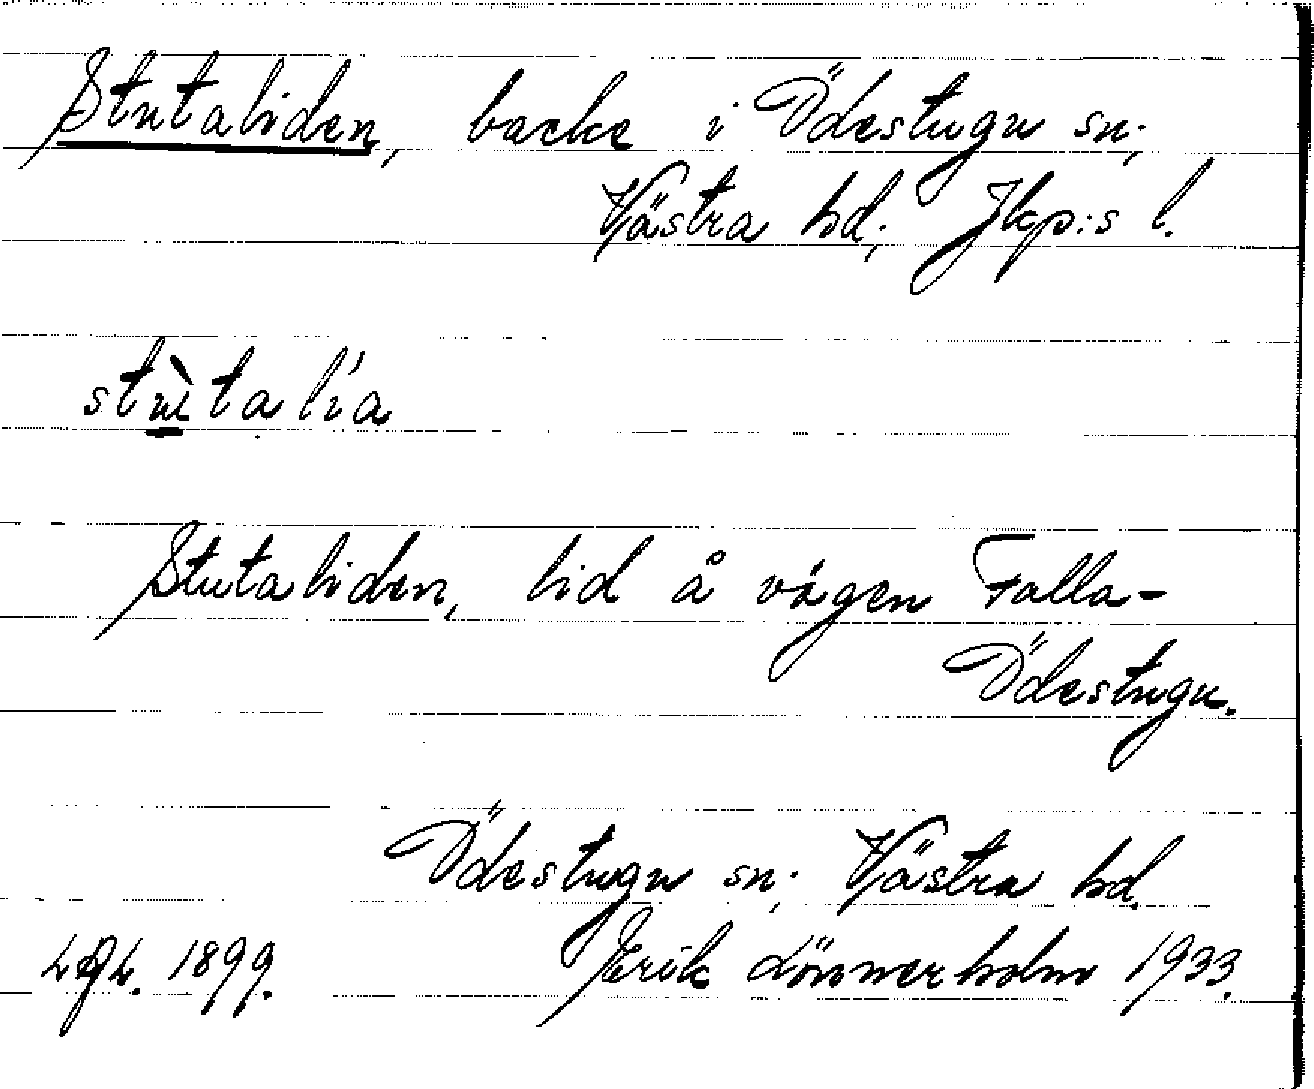 Stutaliden, backe i Ödestugu sn;
Västra hd; Jkp:s l.
stùtalía
Stutaliden, lid å vägen Falla-
Ödestugu.
Ödestugu sn; Västra hd.
1899. Erik Lönnerholm 1933.